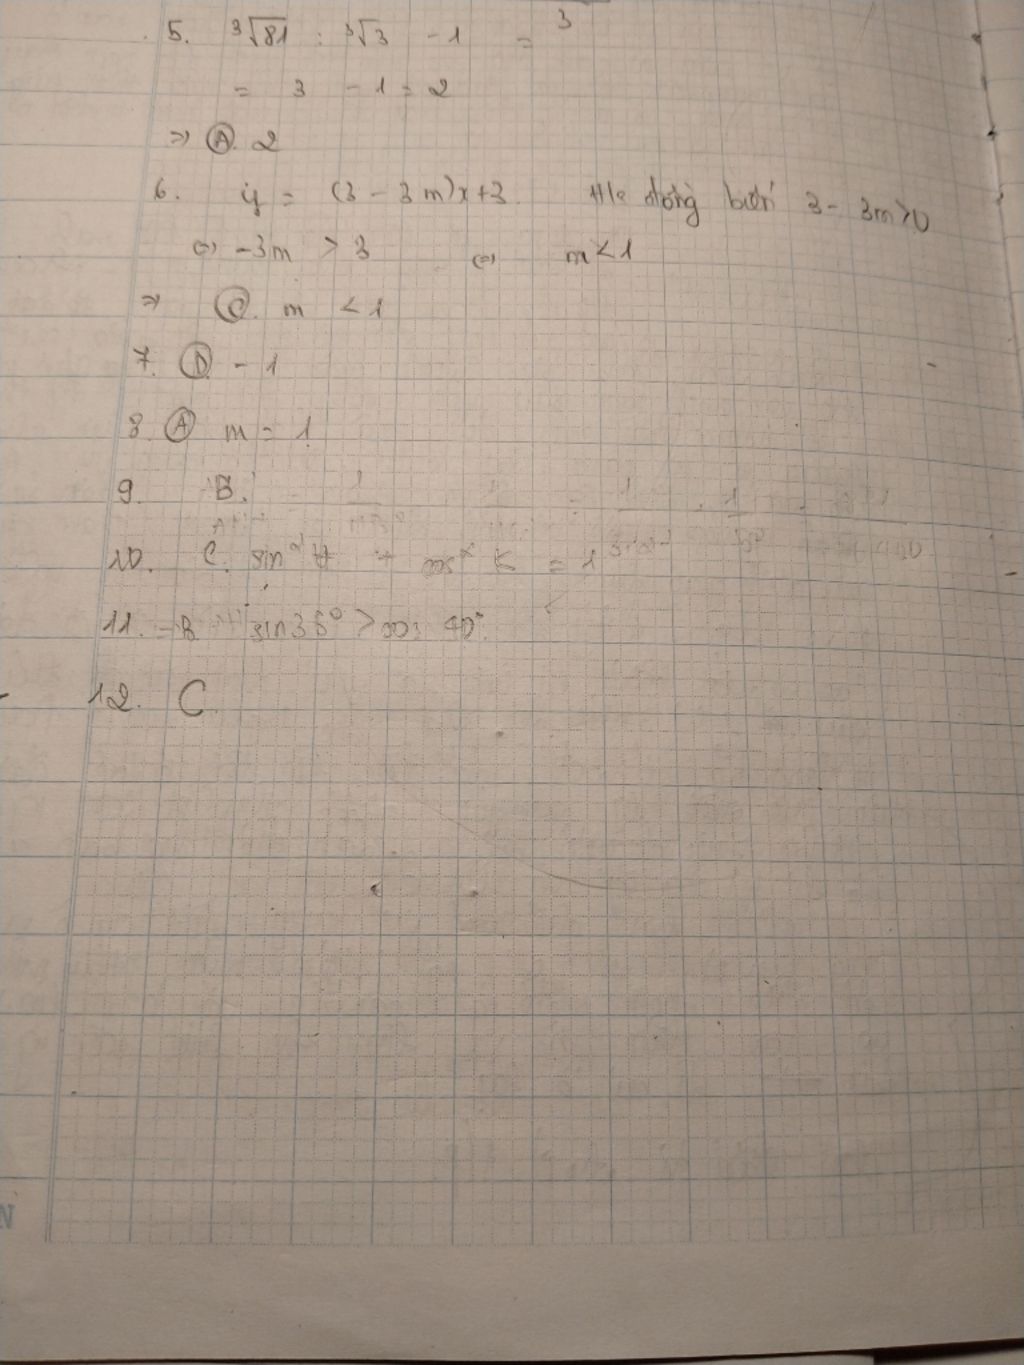 5. ³√81 : ³√3 - 1 = 3
= 3 - 1 = 2
=> Ⓐ. 2
6. y = (3 - 3m)x+3. đồng biến 3 - 3m>0
<=> -3m > 3 <=> m<1
=> Ⓒ. m < 1
7. Ⓓ - 1
8. Ⓐ m = 1
9. B.
10. C. sin + cos = 1
11. B sin36° > cos 40°
12. C